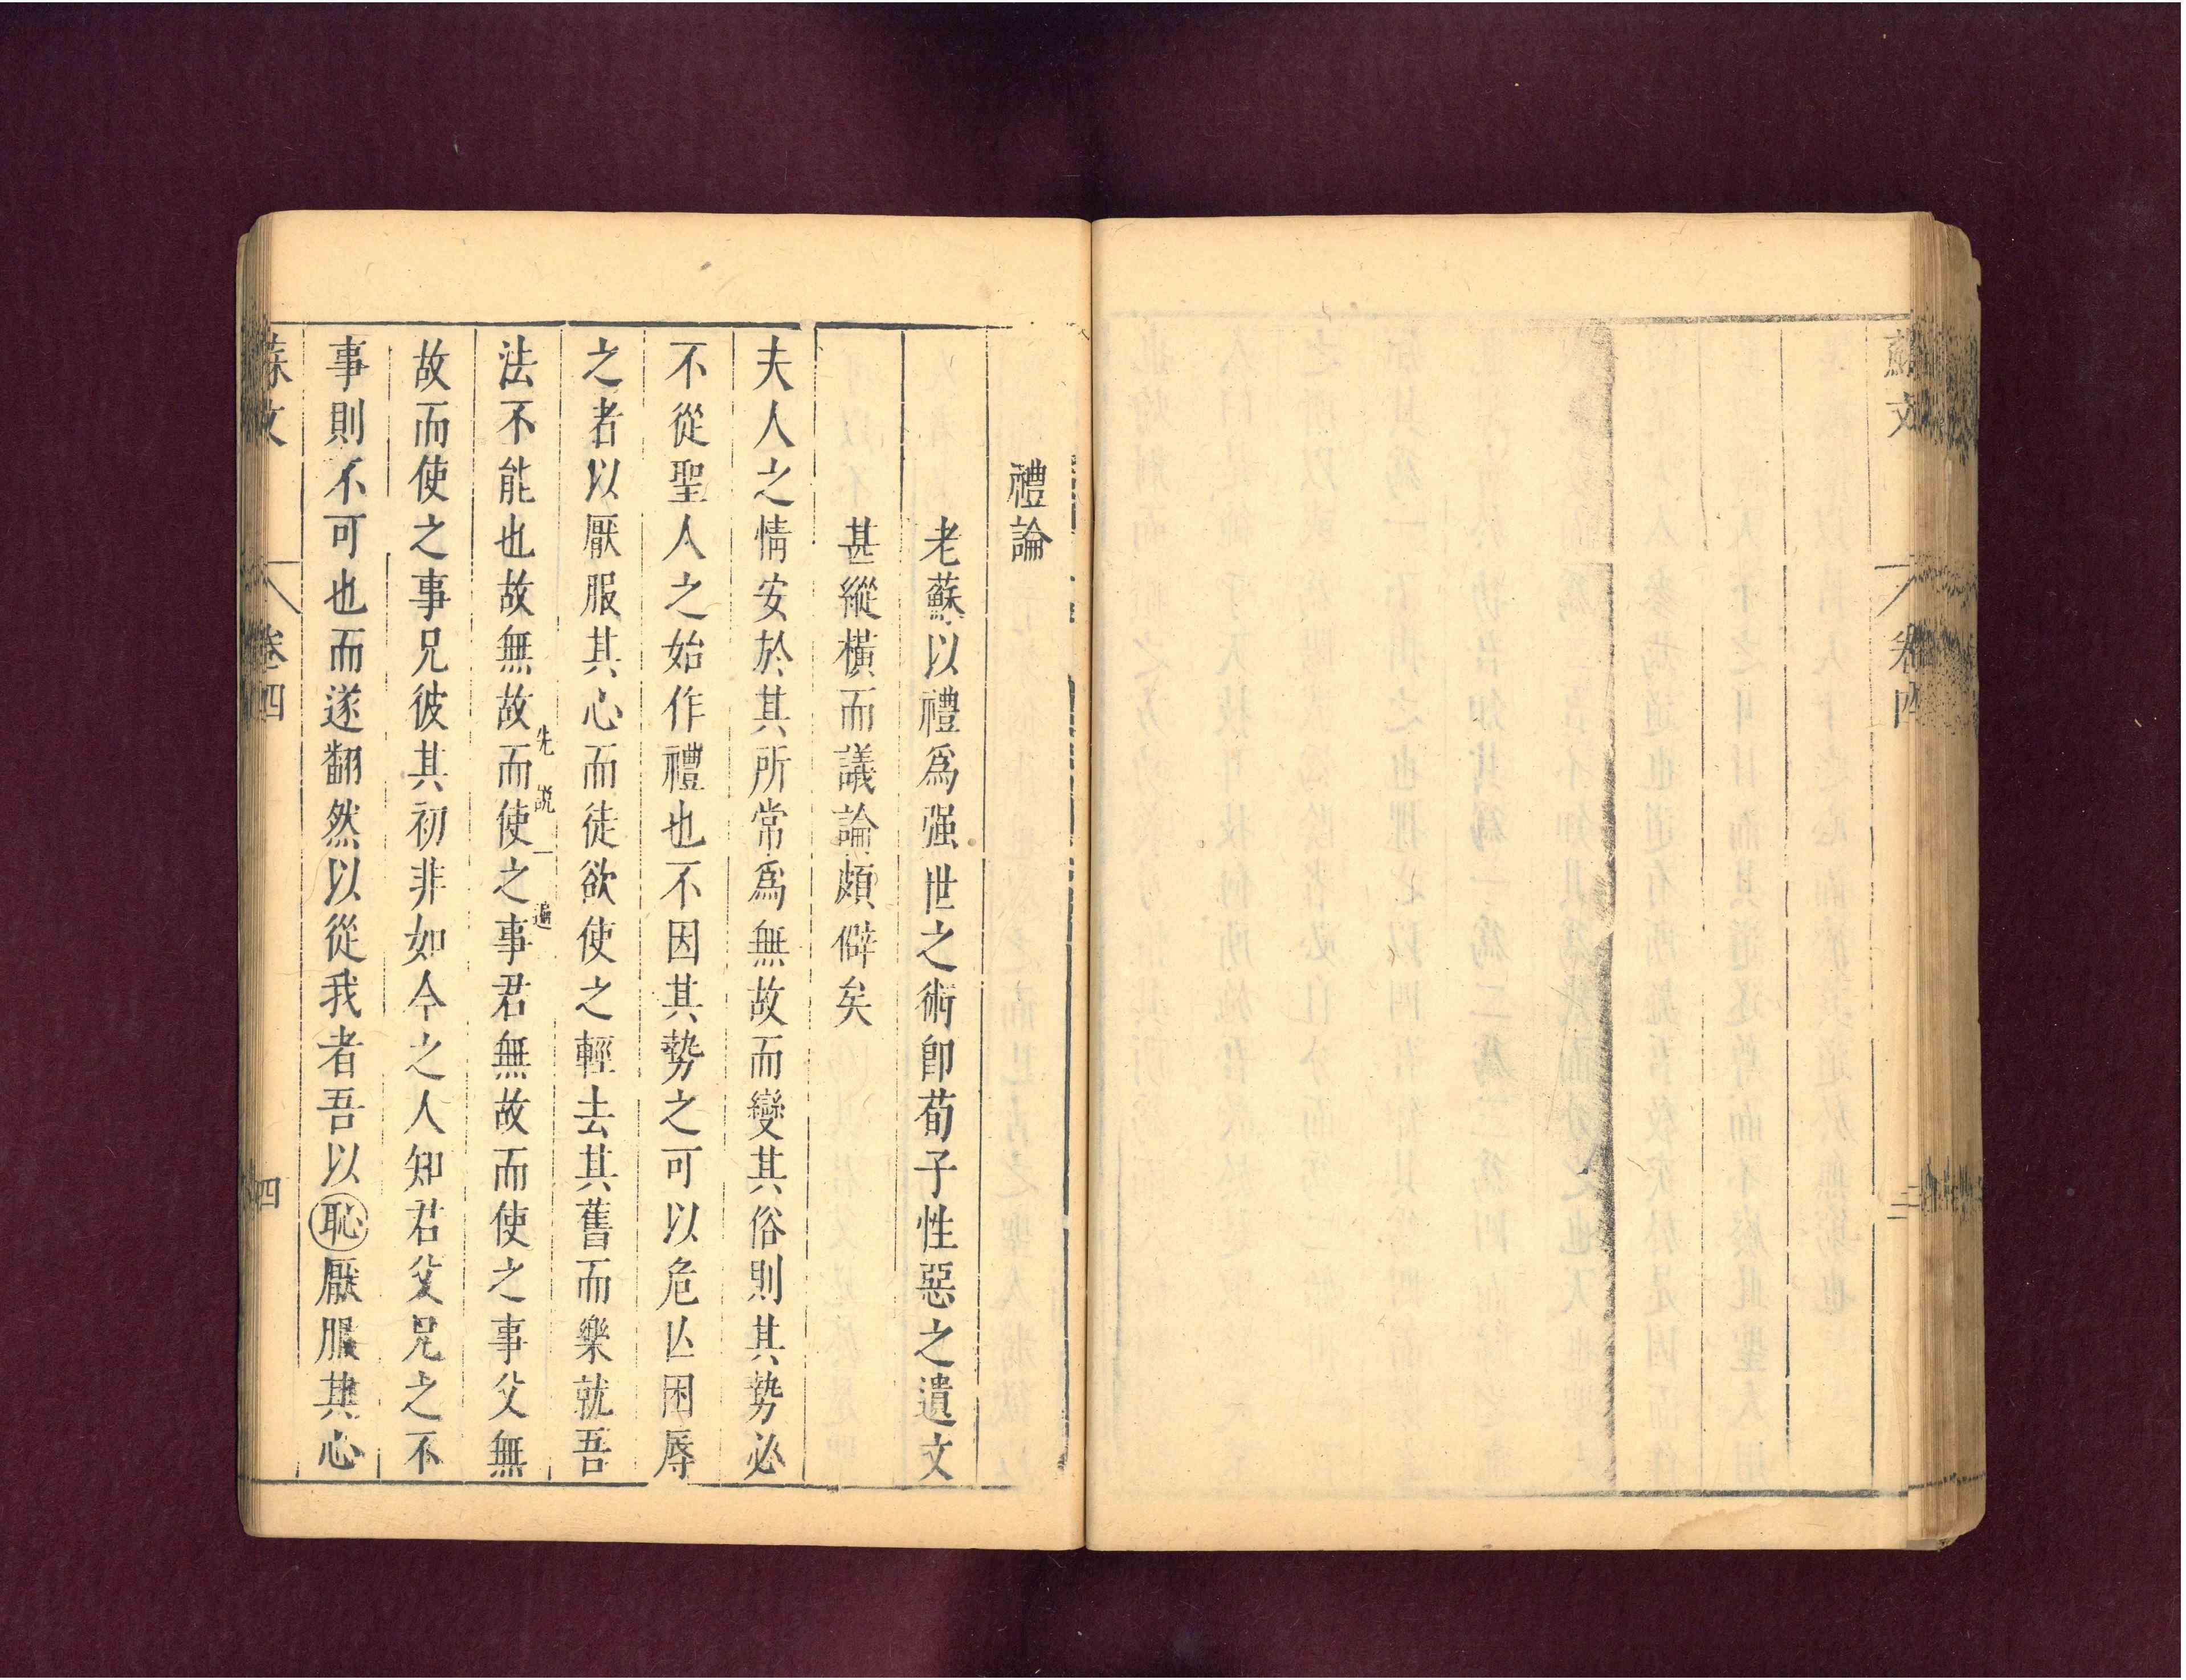 蘇文
卷四
三
禮論
老蘇以禮爲强世之術卽荀子性惡之遺文
甚縱橫而議論頗僻矣
夫人之情安於其所常爲無故而變其俗則其勢必
不從聖人之始作禮也不因其勢之可以危亾困辱
之者以厭服其心而徒欲使之輕去其舊而樂就吾
法不能也故無故而使之事君無故而使之事父無
先説一遍
故而使之事兄彼其初非如今之人知君父兄之不
事則不可也而遂翻然以從我者吾以恥厭服其心
蘇文
卷四
四